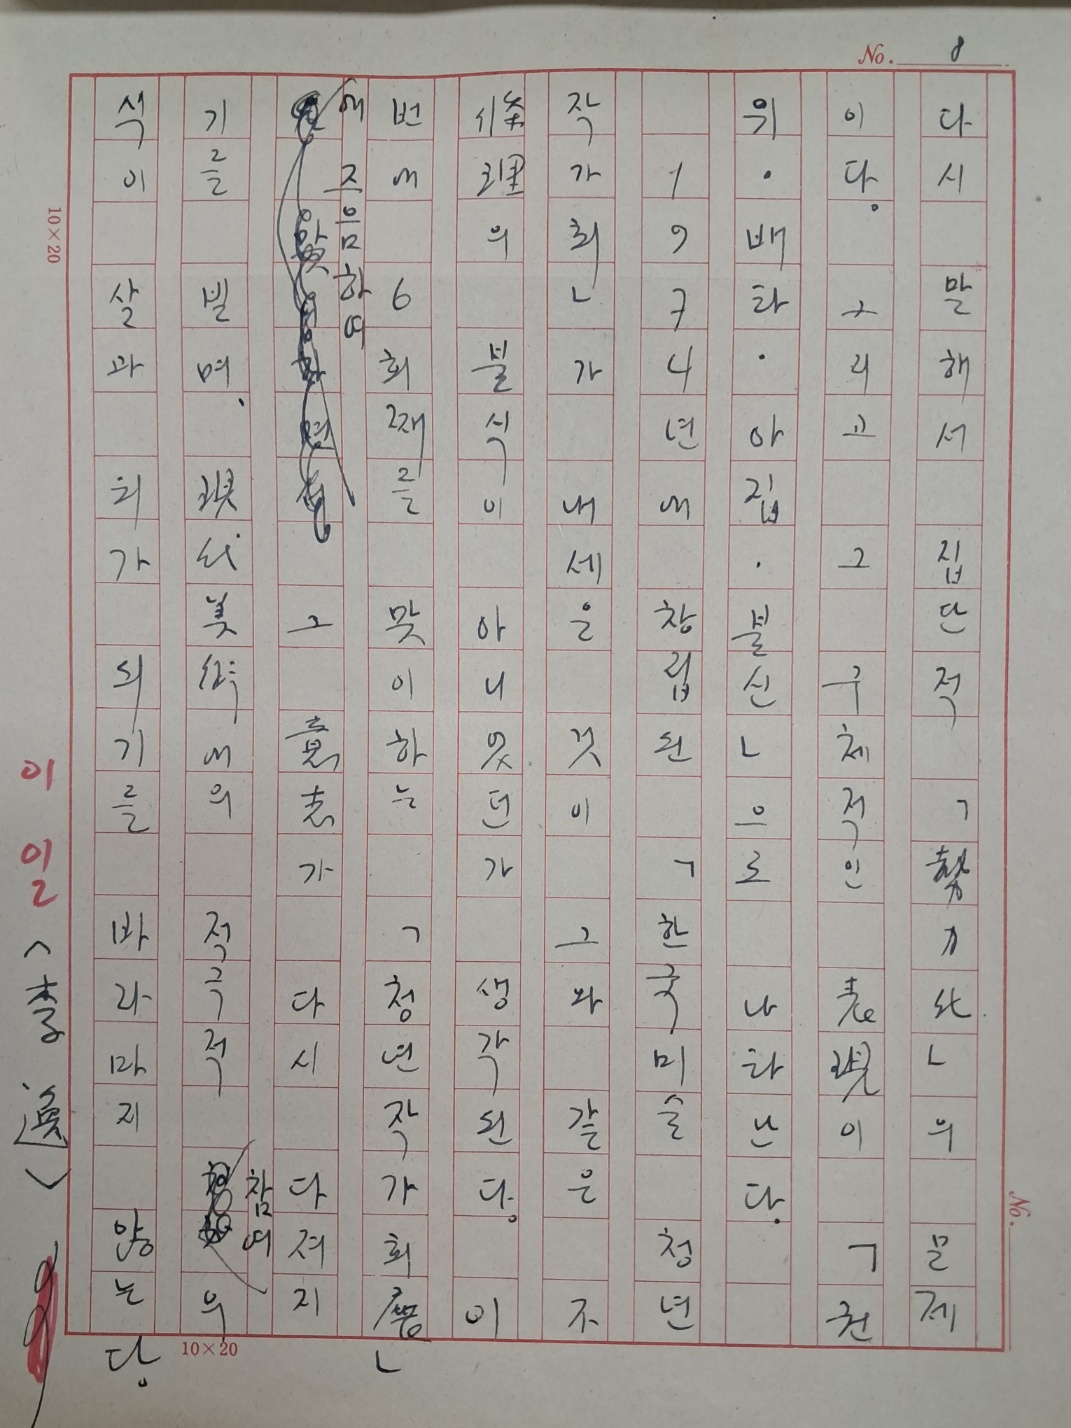 No. 8
다시 말해서 집단적 「勢力化」의 문제
이다. 그리고 그 구체적인 表現이 「권
위·배타·아집·불신」으로 나타난다.
1974년에 창립된 「한국미술청년
작가회」가 내세은 것이 그와 같은 不
條理의 불식이 아니었던가 생각된다. 이
번에 6회째를 맞이하는 「청년작가회展」
에 즈음하여 그 意志가 다시 다져지
기를 빌며, 現代美術에의 적극적 참여의
식이 살과 피가 되기를 바라마지 않는
다.
이일 <李逸>
10×20
10×20
No.